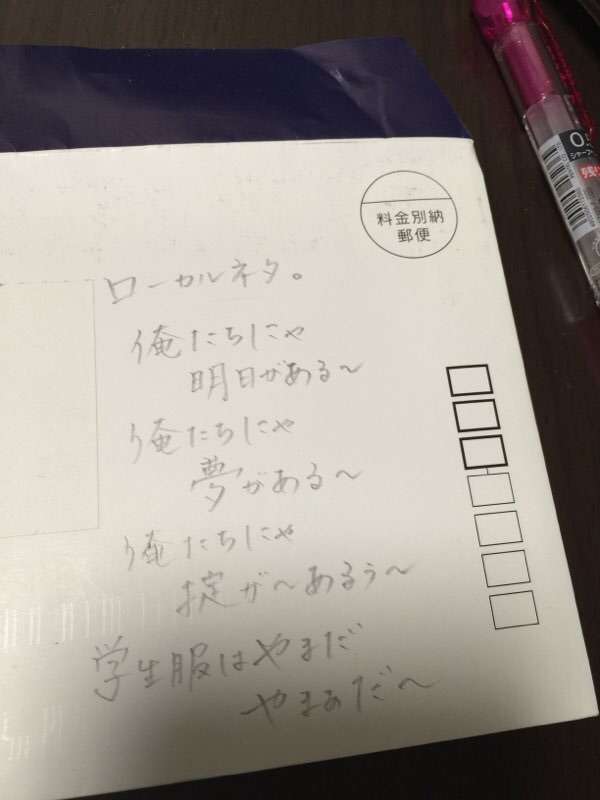 料金別納
郵便
ローカルネタ。
俺たちにゃ
明日がある〜
俺たちにゃ
夢がある〜
俺たちにゃ
掟が〜あるぅ〜
学生服はやまだ
やまぁだ〜
0.5
シャープ